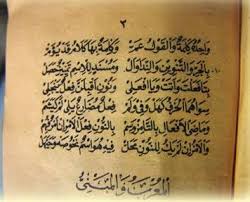 ٢
وَاحِدُهُ كَلِمَةٌ وَالْقَوْلُ عَمّ وَكَلْمَةٌ بِهَا كَلَامٌ قَدْ يُؤَمّ
بِالْجَرِّ وَالتَّنْوِينِ وَالنِّدَا وَأَلْ وَمُسْنَدٍ لِلِاسْمِ تَمْيِيزٌ حَصَلْ
بِتَا فَعَلْتَ وَأَتَتْ وَيَا افْعَلِي وَنُونِ أَقْبِلَنَّ فِعْلٌ يَنْجَلِي
سِوَاهُمَا الْحَرْفُ كَهَلْ وَفِي وَلَمْ فِعْلٌ مُضَارِعٌ يَلِي لَمْ كَيَشَمْ
وَمَاضِيَ الْأَفْعَالِ بِالتَّا مِزْ وَسِمْ بِالنُّونِ فِعْلَ الْأَمْرِ إِنْ أَمْرٌ فُهِمْ
وَالْأَمْرُ إِنْ لَمْ يَكُ لِلنُّونِ مَحَلّ فِيهِ هُوَ اسْمٌ نَحْوُ صَهْ وَحَيَّهَلْ
الْمُعْرَبُ وَالْمَبْنِيُّ